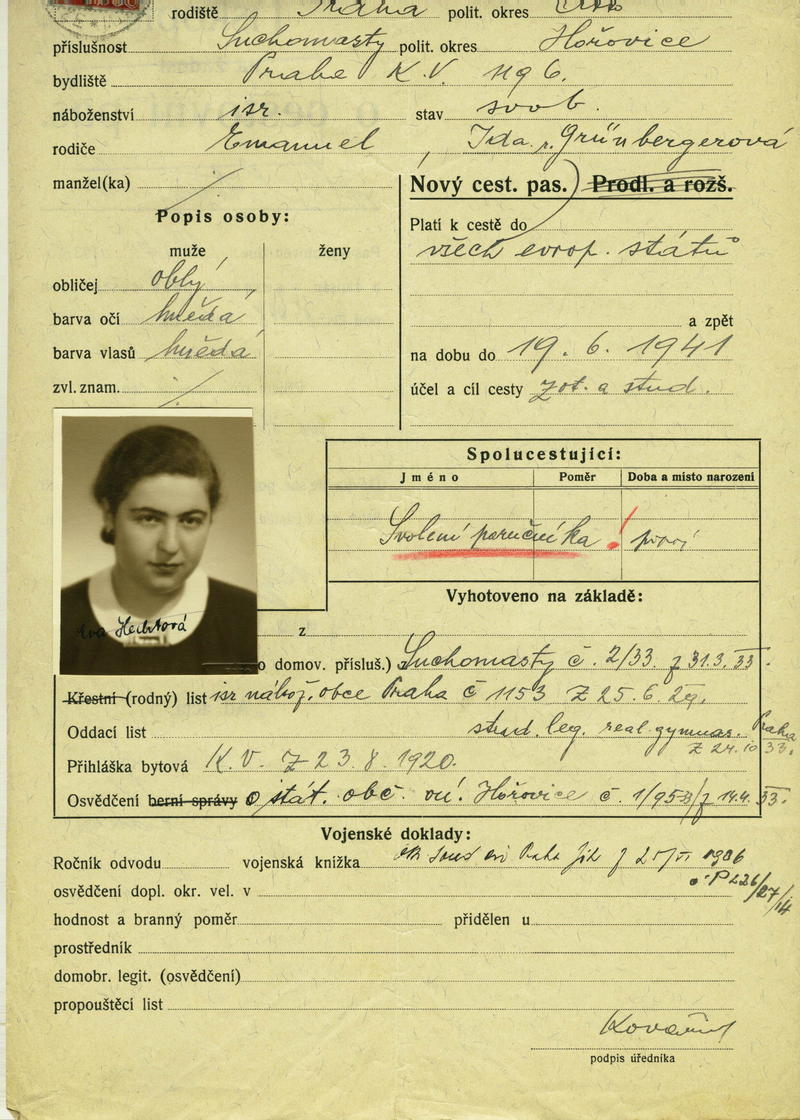 rodiště Praha polit. okres
příslušnost Suchomasty polit. okres Hořovice
bydliště Praha K.V. 1196.
náboženství isr. stav svob.
rodiče Emanuel, Ida r. Grünbergerová
manžel(ka) /
Nový cest. pas.) Prodl. a rozš.
Popis osoby:
Platí k cestě do
všech evrop. států
muže ženy
obličej oblý
barva očí hnědá
a zpět
barva vlasů hnědá
na dobu do 19. 6. 1941
zvl. znam. /
účel a cíl cesty zot. a stud.
Spolucestující:
Jméno Poměr Doba a místo narození
Svolení poručníka!
Vyhotoveno na základě:
Eva Hechtová
z
o domov. přísluš.) Suchomasty č. 2/33. z 31.3. 33.
Křestní (rodný) list isr. nábož. obce Praha č 1153 z 25. 6. 29.
Oddací list stud. leg. real. gymnas. Praha
z 24. 10 33.
Přihláška bytová K.V. z 23. 8. 1920.
Osvědčení berní správy o stát. obč. Hořovice č. 1/953/ z 14.4. 33.
Vojenské doklady:
Ročník odvodu vojenská knížka
osvědčení dopl. okr. vel. v
hodnost a branný poměr přidělen u
prostředník
domobr. legit. (osvědčení)
propouštěcí list
podpis úředníka